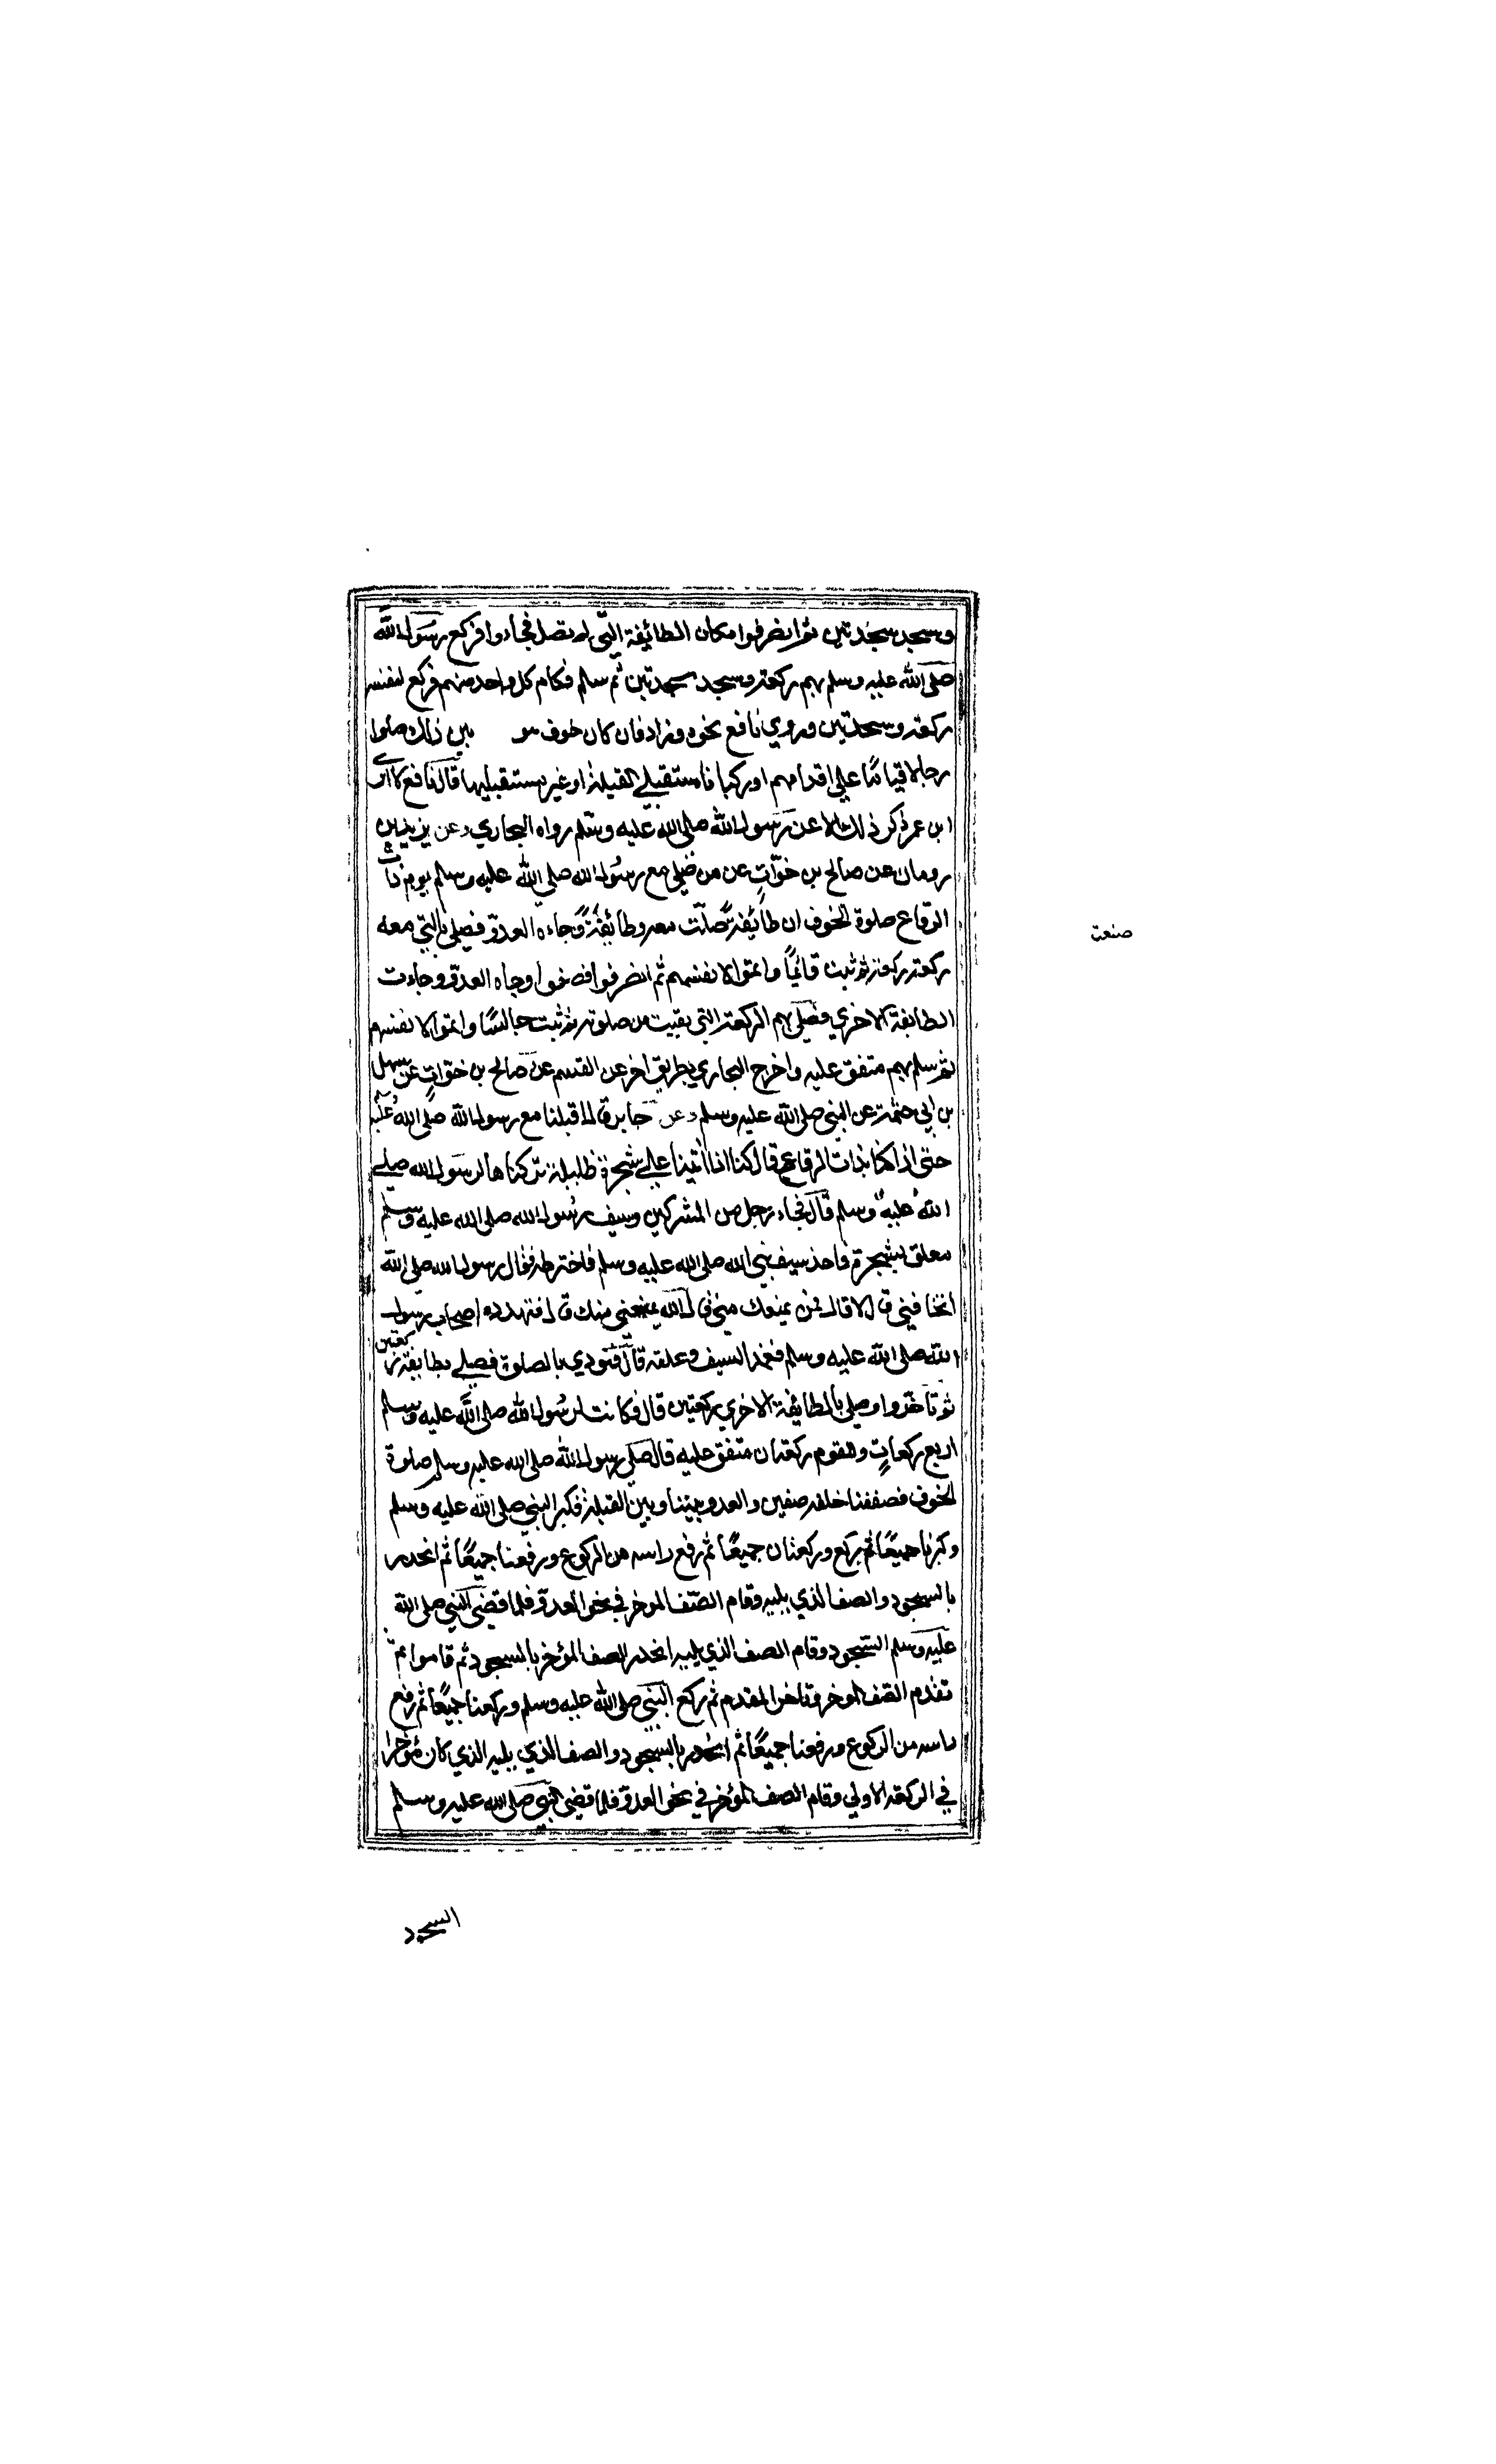 وسجد سجدتين ثم انصرفوا مكان الطائفة التي لم تصل فجاءوا فركع رسول الله
صلى الله عليه وسلم بهم ركعة وسجد سجدتين ثم سلم فكام كل واحد منهم فركع لنفسه
ركعة وسجدتين وروي نافع نحوه وزاد فان كان خوف هو بين ذلك صلوا
رجالا قياما علي اقدامهم او ركبانا مستقبلي القبلة او غير مستقبليها قال نافع لا اري
ابن عمر ذكر ذلك الا عن رسول الله صلى الله عليه وسلم رواه البخاري وعن يزيد بن
رومان عن صالح بن خوّاتٍ عن من صلي مع رسول الله صلى الله عليه وسلم يوم ذات
الرقاع صلوة الخوف ان طائفةً صلّت معه وطائفةً وجاءه العدوّ فصلي بالتي معه
ركعة ركعة ثم ثبت قائمًا واتموا لانفسهم ثم انصرفوا فصفوا وجاه العدوّ وجاءت
الطائفة الاخري فصلي بهم الركعة التي بقيت من صلوته ثم ثبت جالسًا واتموا لانفسهم
ثم سلم بهم متفق عليه واخرج البخاري بطريق اخر عن القسم عن صالح بن خوّاتٍ عن سهل
بن ابي حثمة عن النبي صلى الله عليه وسلم وعن جابر قال اقبلنا مع رسول الله صلى الله عليه
حتى اذا كنا بذات الرقاع قال كنا اذا اتينا علي شجرة ظليلة تركناها لرسول الله صلي
الله عليه وسلم قال فجاء رجل من المشركين وسيف رسول الله صلى الله عليه وسلم
معلق بشجرة فاخذ سيف نبي الله صلى الله عليه وسلم فاخترطه فقال رسول الله صلى الله
اتخافني قال لا قال فمن يمنعك مني قال الله يمنعني منك قال فتهدده اصحاب رسول
الله صلى الله عليه وسلم فغمد السيف وعلقه قال فنودي بالصلوة فصلي بطائفة ركعتين
ثم تاخّروا وصلي بالطائفة الاخري ركعتين قال فكانت لرسول الله صلى الله عليه وسلم
اربع ركعاتٍ وللقوم ركعتان متفق عليه قال صلى رسول الله صلى الله عليه وسلم صلوة
الخوف فصففنا خلفه صفين والعدو بيننا وبين القبلة فكبر النبي صلى الله عليه وسلم
وكبرنا جميعًا ثم ركع وركعنان جميعًا ثم رفع راسه من الركوع ورفعنا جميعًا ثم انحدر
بالسجود والصف الذي يليه وقام الصّف الموخر في نحو العدوّ فلما قضي النبي صلى الله
عليه وسلم السجود وقام الصف الذي يليه انحدر الصف المؤخر بالسجود ثم قاموا ثمّ
تقدم الصّف الموخر وتاخر المقدم ثم ركع النبي صلى الله عليه وسلم وركعنا جميعًا ثم رفع
راسه من الركوع ورفعنا جميعًا ثم انحدر بالسجود والصف الذي يليه الذي كان مؤخرا
في الركعة الاولي وقام الصف المؤخر في نحو العدوّ فلما قضي النبي صلى الله عليه وسلم
السجود
صنعت